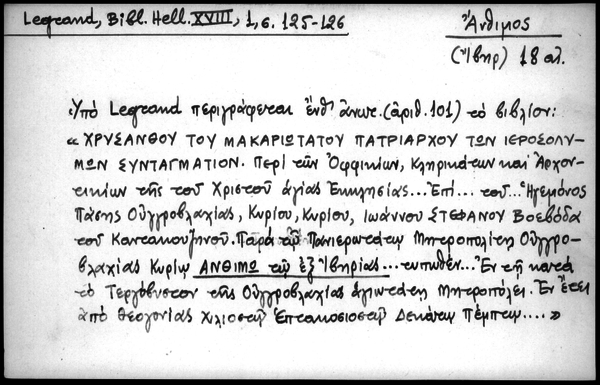 Legrand, Bibl. Hell. XVIII, 1, σ. 125-126
Ἄνθιμος
(Ἴβηρ) 18 αἰ.
Ὑπὸ Legrand περιγράφεται ἔνθ' ἀνωτ. (ἀριθ. 101) τὸ βιβλίον:
« ΧΡΥΣΑΝΘΟΥ ΤΟΥ ΜΑΚΑΡΙΩΤΑΤΟΥ ΠΑΤΡΙΑΡΧΟΥ ΤΩΝ ΙΕΡΟΣΟΛΥ-
ΜΩΝ ΣΥΝΤΑΓΜΑΤΙΟΝ. Περὶ τῶν Ὀφφικίων, Κληρικάτων καὶ Ἀρχον-
τικίων τῆς τοῦ Χριστοῦ ἁγίας Ἐκκλησίας... Ἐπὶ... τοῦ... Ἡγεμόνος
Πάσης Οὐγγροβλαχίας, Κυρίου, Κυρίου, Ἰωάννου ΣΤΕΦΑΝΟΥ Βοεβόδα
τοῦ Καντακουζηνοῦ. Παρὰ τῷ Πανιερωτάτῳ Μητροπολίτῃ Οὐγγρο-
βλαχίας Κυρίῳ ΑΝΘΙΜΩ τῷ ἐξ Ἰβηρίας... τυπωθὲν... Ἐν τῇ κατὰ
τὸ Τεργόβυστον τῆς Οὐγγροβλαχίας ἁγιωτάτῃ Μητροπόλει. Ἐν ἔτει
ἀπὸ θεογονίας Χιλιοστῷ Ἑπτακοσιοστῷ Δεκάτῳ Πέμπτῳ.... »